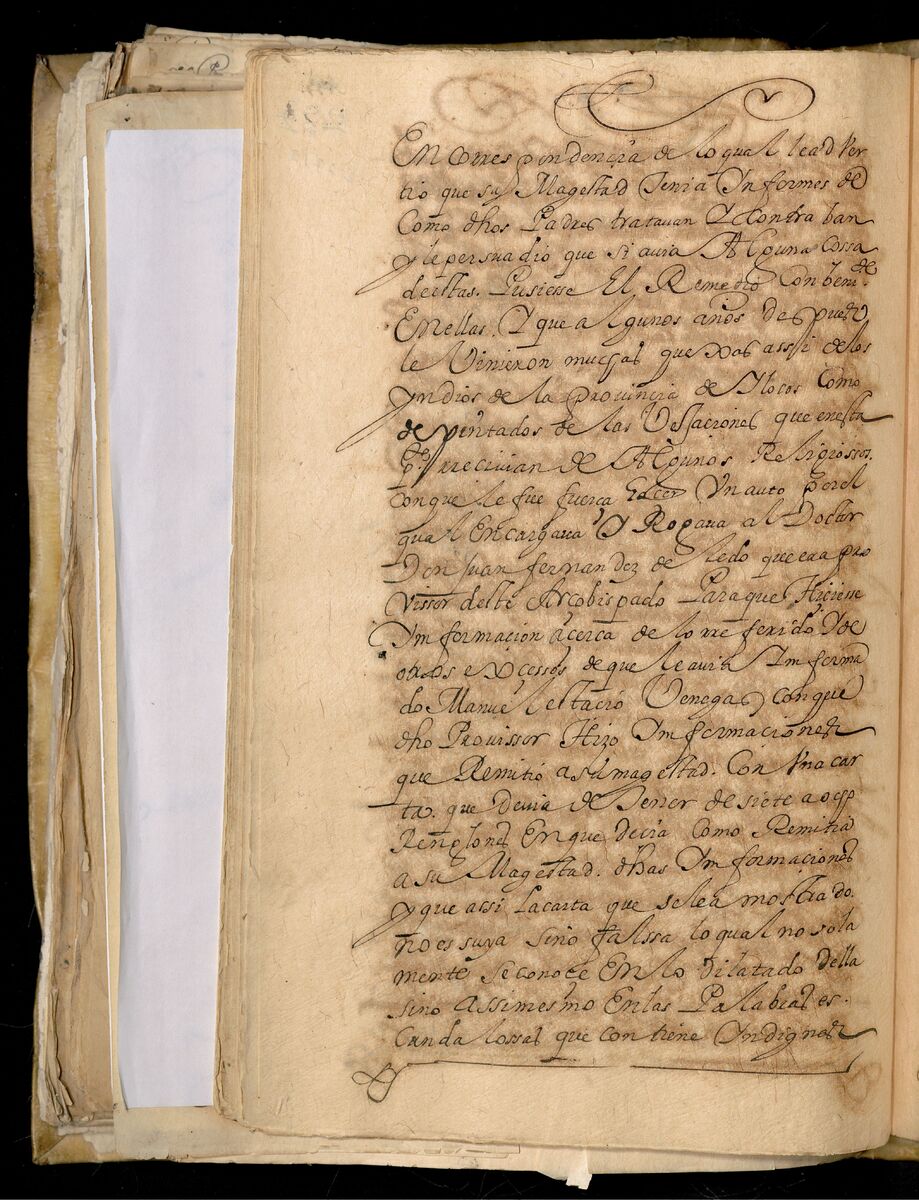 En correspondencia de lo qual le adver
tio que su Magestad Tenia Ynformes de
Como dhos Padres tratavan Y contraban
y le persuadio que si avia Alguna Cossa
de estas. Pusiesse El Remedio Conbeni.de
En ellas. Y que algunos años despues
le Vinieron muchas quexas assi de los
Yndios de la provincia de Ylocos Como
de pintados de las Vessaciones que en esta
recivian de Algunos Religiossos.
Con que le fue fuerca hacer Un auto por el
qual Encargava Y Rogava al Doctor
Don Juan fernandez de ledo que era pro
vissor deste Arcobispado Para que Hiciesse
Ynformacion acerca de lo rreferido Y de
otros excessos de que le avia Ynforma
do Manuel estacio Venegas, con que
dho Provissor Hizo Ynformaciones
que Remitio a su magestad. Con Una car
ta. que devia de Tener de siete a ocho
Renglones En que decia Como Remitia
a su Magestad. dhas Ynformaciones
y que assi La carta que se le a mostrado.
no es suya sino falssa lo qual no sola
mente se conoce En lo dilatado della
sino assimesmo En las Palabras es.
candalossas que contiene Yndignas